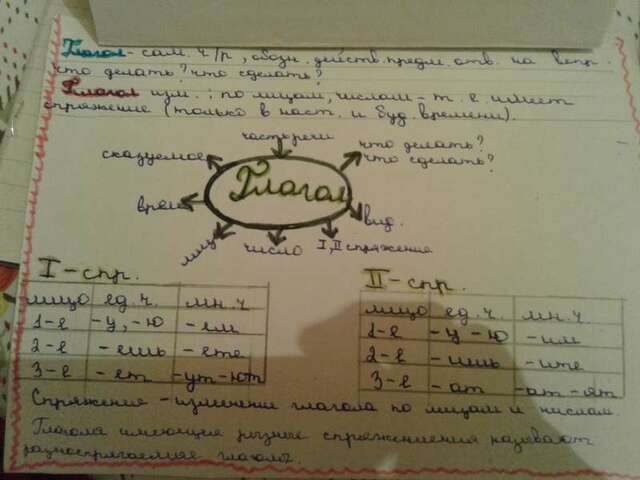 Глагол - сам. ч/р, обозн. действ. предм. отв. на вопр.
что делать? что сделать?
Глагол изм.: по лицам, числам - т. е имеет
спряжение (только в наст. и буд. времени).
часть речи
что делать?
что сделать?
сказуемое
Глагол
время
лицо
число
I, II спряжение
вид.
I - спр.
лицо ед. ч. мн. ч.
1-е -у, -ю -ем
2-е -ешь -ете
3-е -ет -ут -ют
II - спр.
лицо ед. ч. мн. ч.
1-е -у -ю -им
2-е -ишь -ите
3-е -ат -ат -ят
Спряжение - изменение глагола по лицам и числам.
Глагола имеющие разные спряжения называют
разноспрягаемые глагол.